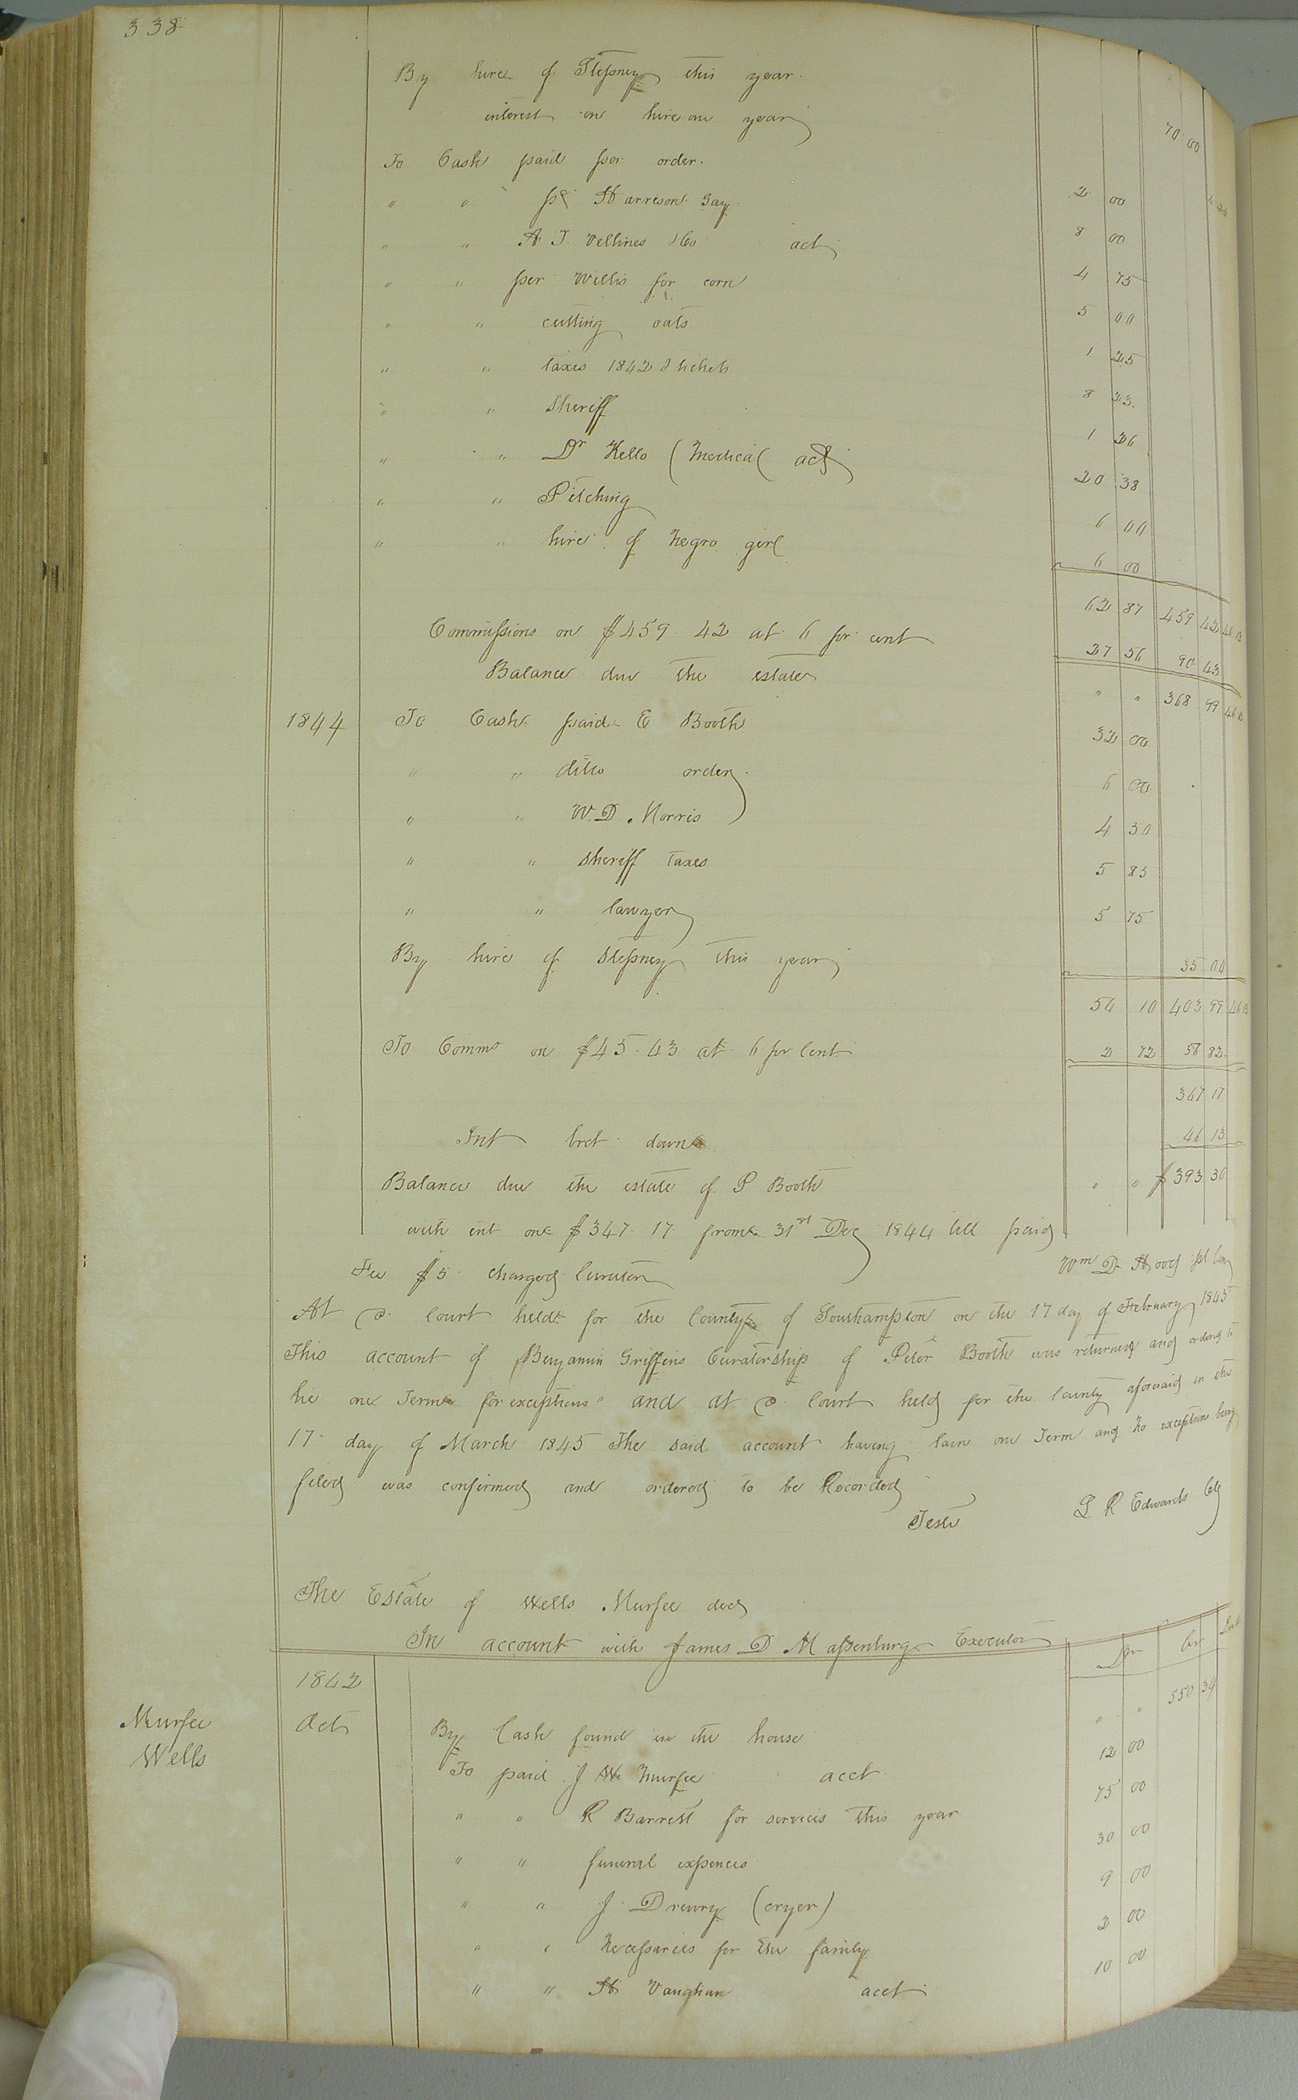 338
By hire of Stepney this year. 70 00
interest on hire one year 4 20
To Cash paid per order. 2 00
" " pd Harrison Gay 8 00
" " A J Vellines &Co act 4 75
" " per Willis for corn 5 00
" " cutting oats 1 25
" " taxes 1842 & tickets 8 23
" " Sheriff 1 26
" " Dr Kello (Medical act) 20 38
" " Pitching 6 00
" " hire of Negro girl 6 00
62 87 459 42 46 13
Commissions on $459 42 at 6 per cent 27 56 90 43
Balance due the estate " " 368 99 46 13
1844 To Cash paid E Booth 32 00
" " ditto order 6 00
" " W. D. Norris 4 50
" " Sheriff Taxes 5 85
" " lawyer 5 75
By hire of Stepney this year 35 00
54 10 403 99 46 13
To Comms on $45.43 at 6 per cent 2 72 56 82
347 17
Int brot down 46 13
Balance due the estate of P Booth " " $393 30
with int on $347.17 from 31st Dec 1844 till paid
Fee $5 charged Curator
Wm D Hood
At a court held for the County of Southampton on the 17 day of February 1845
This account of Benjamin Griffins Curatorship of Peter Booth was returned and ordered to
lie one Term for exceptions" and at a court held for the County aforesaid on the
17 day of March 1845 The said account having lain one Term and no exceptions being
filed was confirmed and ordered to be Recorded
Teste L R Edwards Clk
The Estate of Wells Murfee decd
In account with James D Massenburg Executor
Dr Cr
1842
Oct By Cash found in the house " " 550 34
Murfee
Wells
To paid J W Murfee acct 12 00
" " R Barrett for services this year 75 00
" " funeral expences 30 00
" " J. Drewry (cryer) 9 00
" " Necessaries for the family 2 00
" " H Vaughan acct 10 00